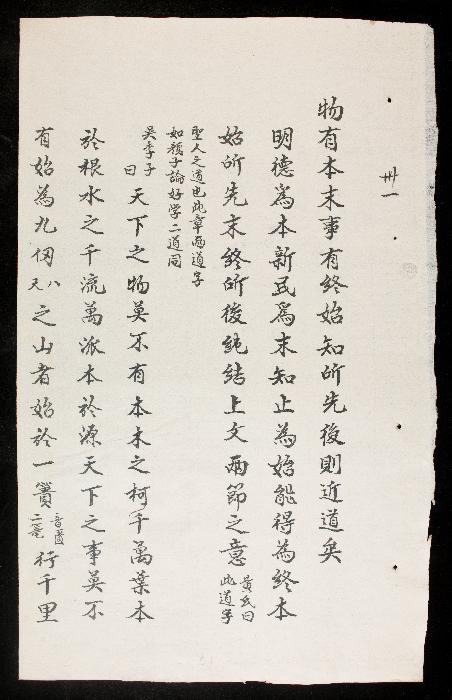 卅一
物有本末事有終始知所先後則近道矣
明德為本新民為末知止為始能得為終本
始所先末終所後此結上文兩節之意黃氏曰此道字
聖人之道也此章两道字
如顏子論好学二道同
吳季子曰天下之物莫不有本木之柯千萬葉本
於根水之千流萬派本於源天下之事莫不
有始為九仭八尺之山者始於一簣音匱土籠行千里